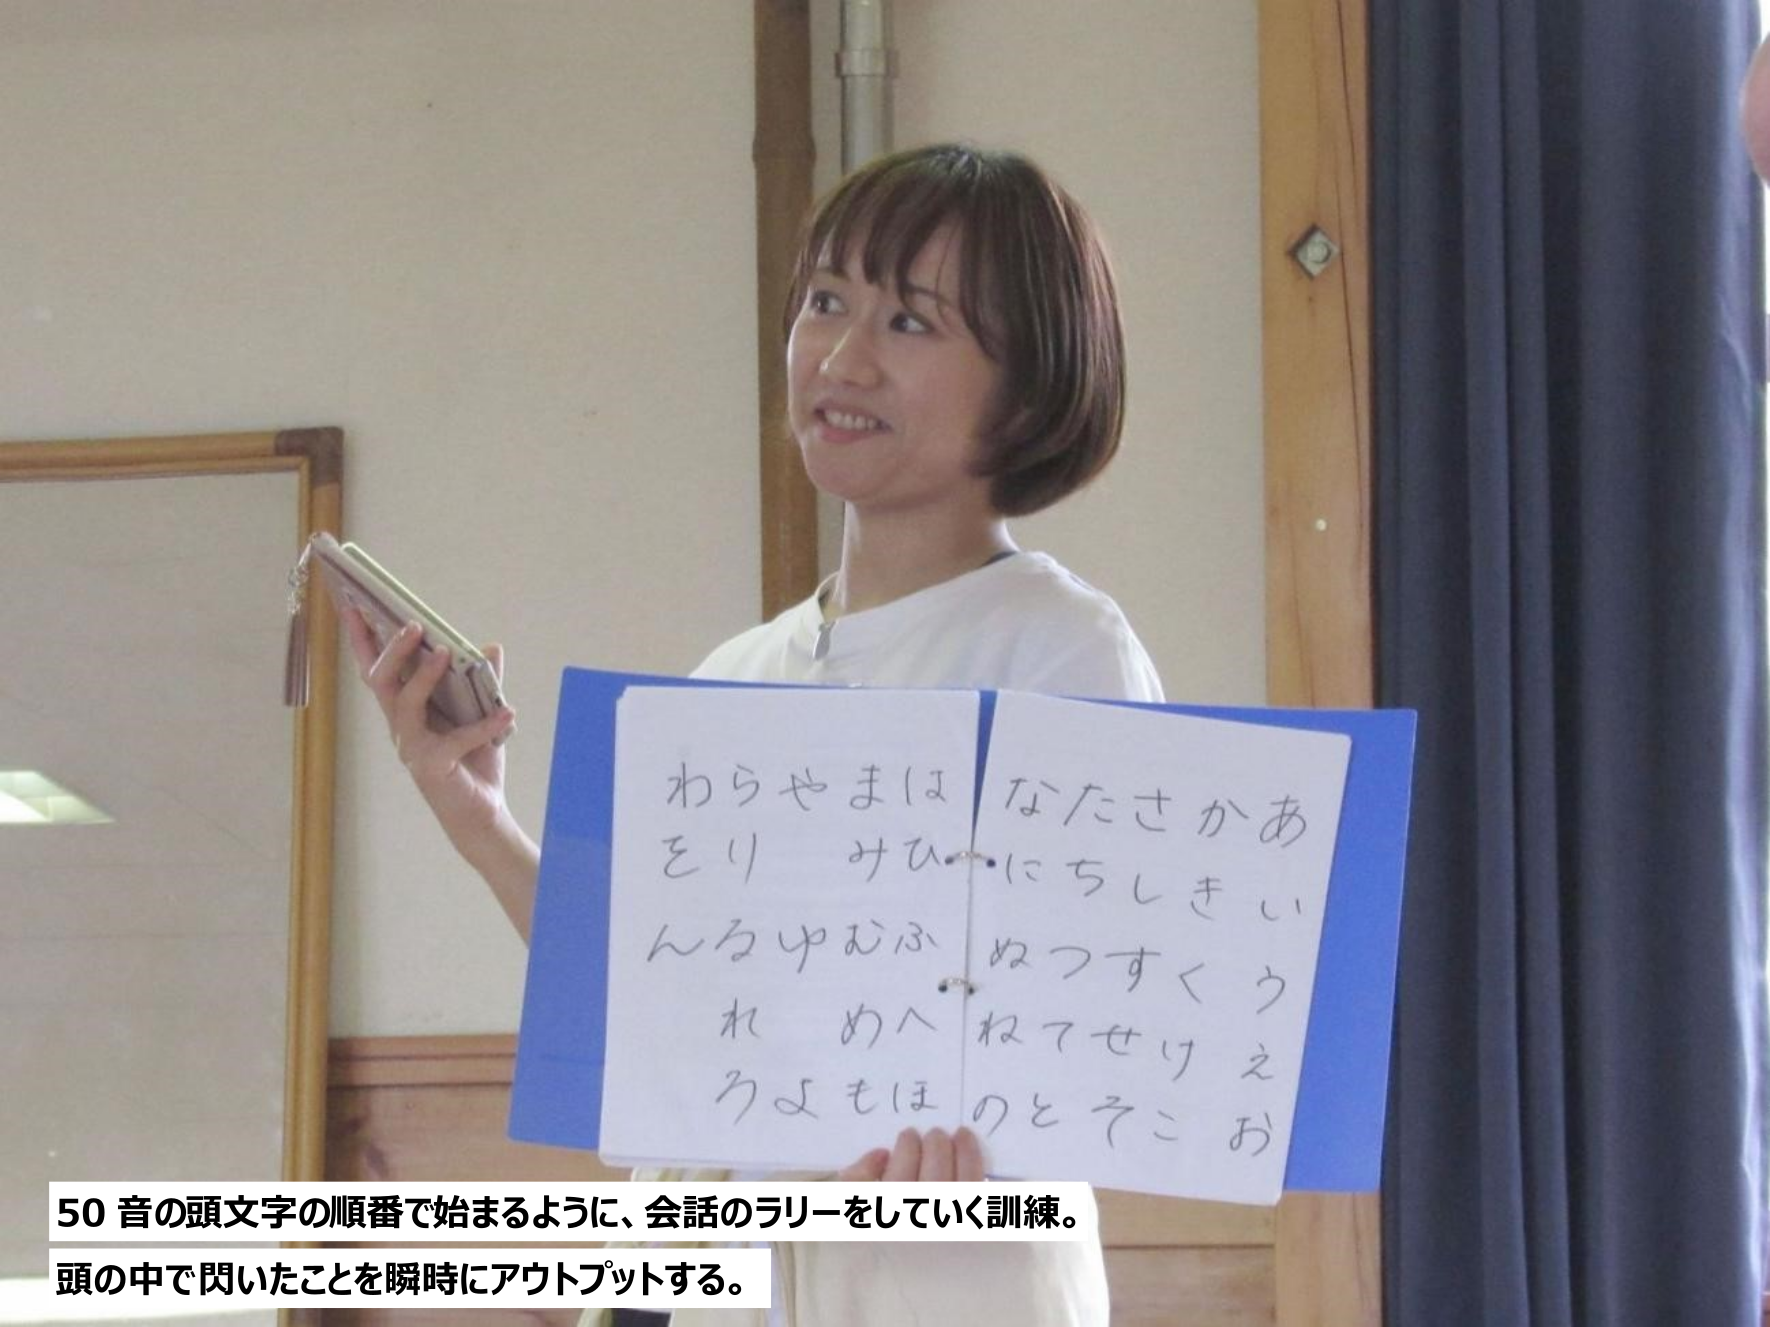 あいうえお
かきくけこ
さしすせそ
たちつてと
なにぬねの
はひふへほ
まみむめも
やゆよ
らりるれろ
わをん
50 音の頭文字の順番で始まるように、会話のラリーをしていく訓練。
頭の中で閃いたことを瞬時にアウトプットする。